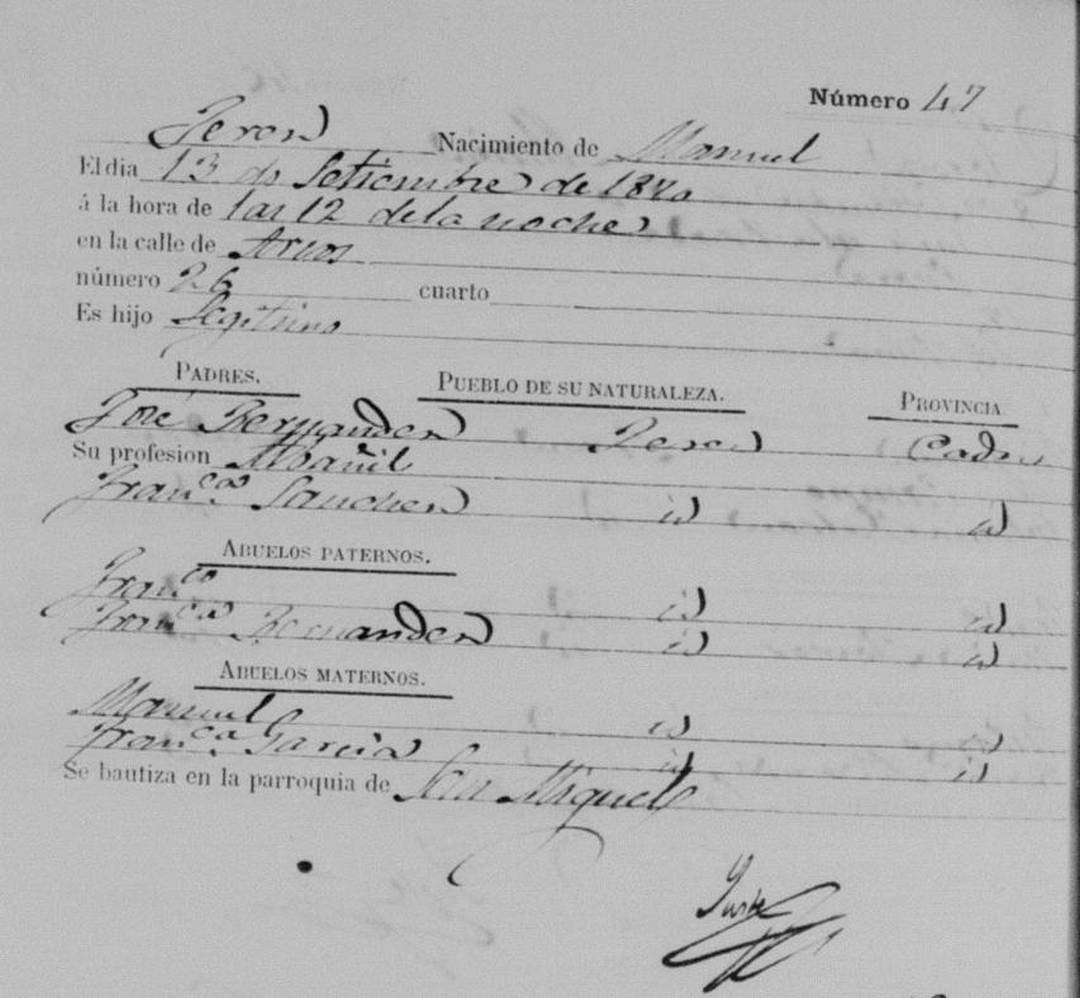 Número 47
Jerez Nacimiento de Manuel
El dia 13 de Setiembre de 1870
á la hora de las 12 de la noche
en la calle de Arcos
número 26 cuarto
Es hijo Legitimo
PADRES. PUEBLO DE SU NATURALEZA. PROVINCIA
José Bernandez Jerez Cadiz
Su profesion Albañil
Fran.ca Sanchez id id
ABUELOS PATERNOS.
Fran.co id id
Fran.ca Bernandez id id
ABUELOS MATERNOS.
Manuel id id
Fran.ca Garcia id id
Se bautiza en la parroquia de San Miguel